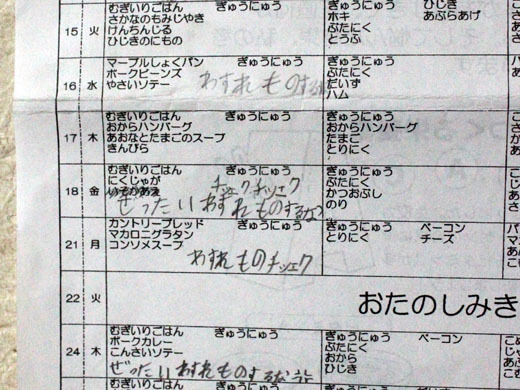 むぎいりごはん ぎゅうにゅう ぎゅうにゅう ひじき
さかなのもみじやき ホキ あぶらあげ
15 火 けんちんじる ぶたにく
ひじきのにもの とうふ
マーブルしょくパン ぎゅうにゅう ぎゅうにゅう
ポークビーンズ ぶたにく
16 水 やさいソテー わすれものする だいず
ハム
むぎいりごはん ぎゅうにゅう ぎゅうにゅう
おからハンバーグ おからハンバーグ
17 木 あおなとたまごのスープ たまご
きんぴら とりにく
むぎいりごはん ぎゅうにゅう ぎゅうにゅう
にくじゃが チェックチッェク ぶたにく
18 金 いそかあえ かつおぶし
ぜったいわすれものするな のり
カントリーブレッド ぎゅうにゅう ぎゅうにゅう ベーコン
マカロニグラタン とりにく チーズ
21 月 コンソメスープ
わすれものチッェク
22 火 おたのしみき
むぎいりごはん ぎゅうにゅう ぎゅうにゅう ベーコン
ポークカレー ぶたにく
24 木 こんさいソテー おから
ぜったいわすれものするな ひじき
むぎいりごはん ぎゅうにゅう ぎゅうにゅう